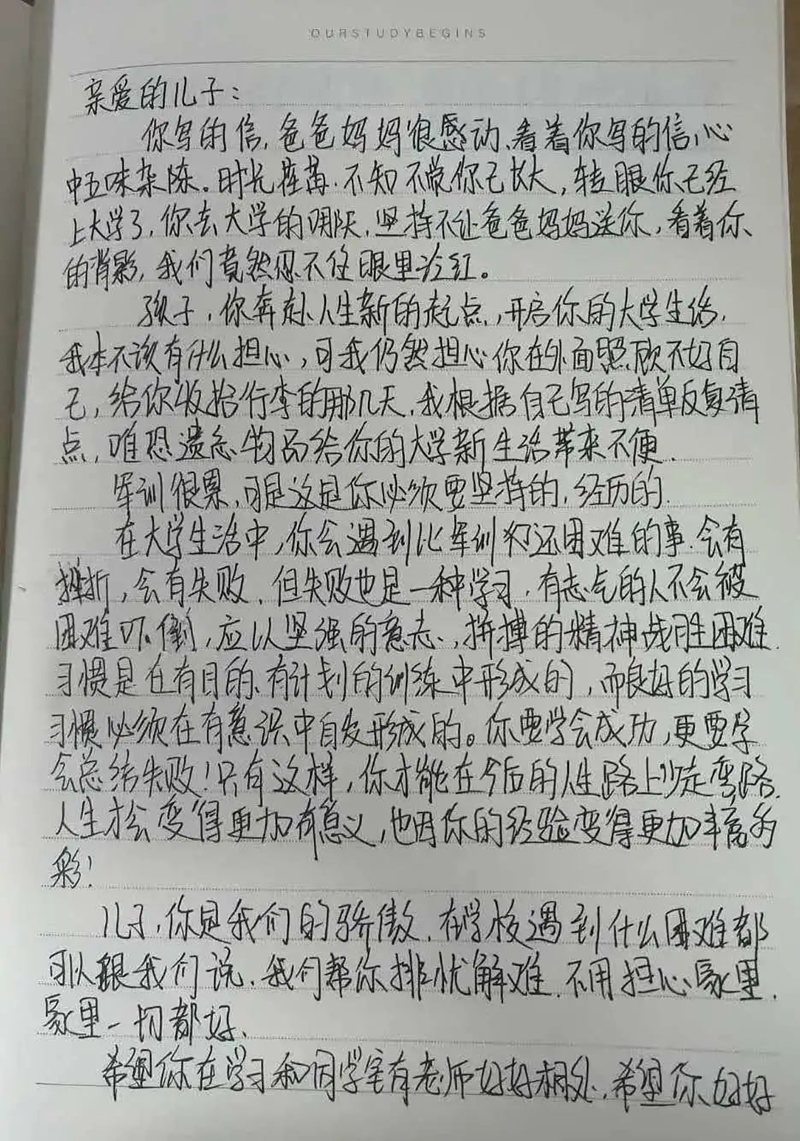 OURSTUDYBEGINS
亲爱的儿子：
你写的信,爸爸妈妈很感动、看着你写的信,心
中五味杂陈。时光荏苒.不知不觉你已长大，转眼你已经
上大学了,你去大学的那天,坚持不让爸爸妈妈送你,看着你
的背影,我们竟然忍不住眼里泛红。
孩子,你奔赴人生新的起点,开启你的大学生活,
我本不该有什么担心,可我仍然担心你在外面照顾不好自
己,给你收拾行李的那几天,我根据自己写的清单反复清
点,唯恐遗忘物品给你的大学新生活带来不便.
军训很累,可是这是你必须要坚持的,经历的.
在大学生活中,你会遇到比军训还困难的事.会有
挫折,会有失败.但失败也是一种学习,有志气的人不会被
困难吓倒,应以坚强的意志,拼搏的精神战胜困难.
习惯是在有目的、有计划的训练中形成的,而良好的学习
习惯必须在有意识中自发形成的。你要学会成功,更要学
会总结失败!只有这样,你才能在今后的人生路上少走弯路.
人生才会变得更加有意义,也因你的经验变得更加丰富多
彩!
儿子,你是我们的骄傲.在学校遇到什么困难都
可以跟我们说.我们帮你排忧解难.不用担心家里.
家里一切都好.
希望你在学习和同学室友老师好好相处.希望你好好